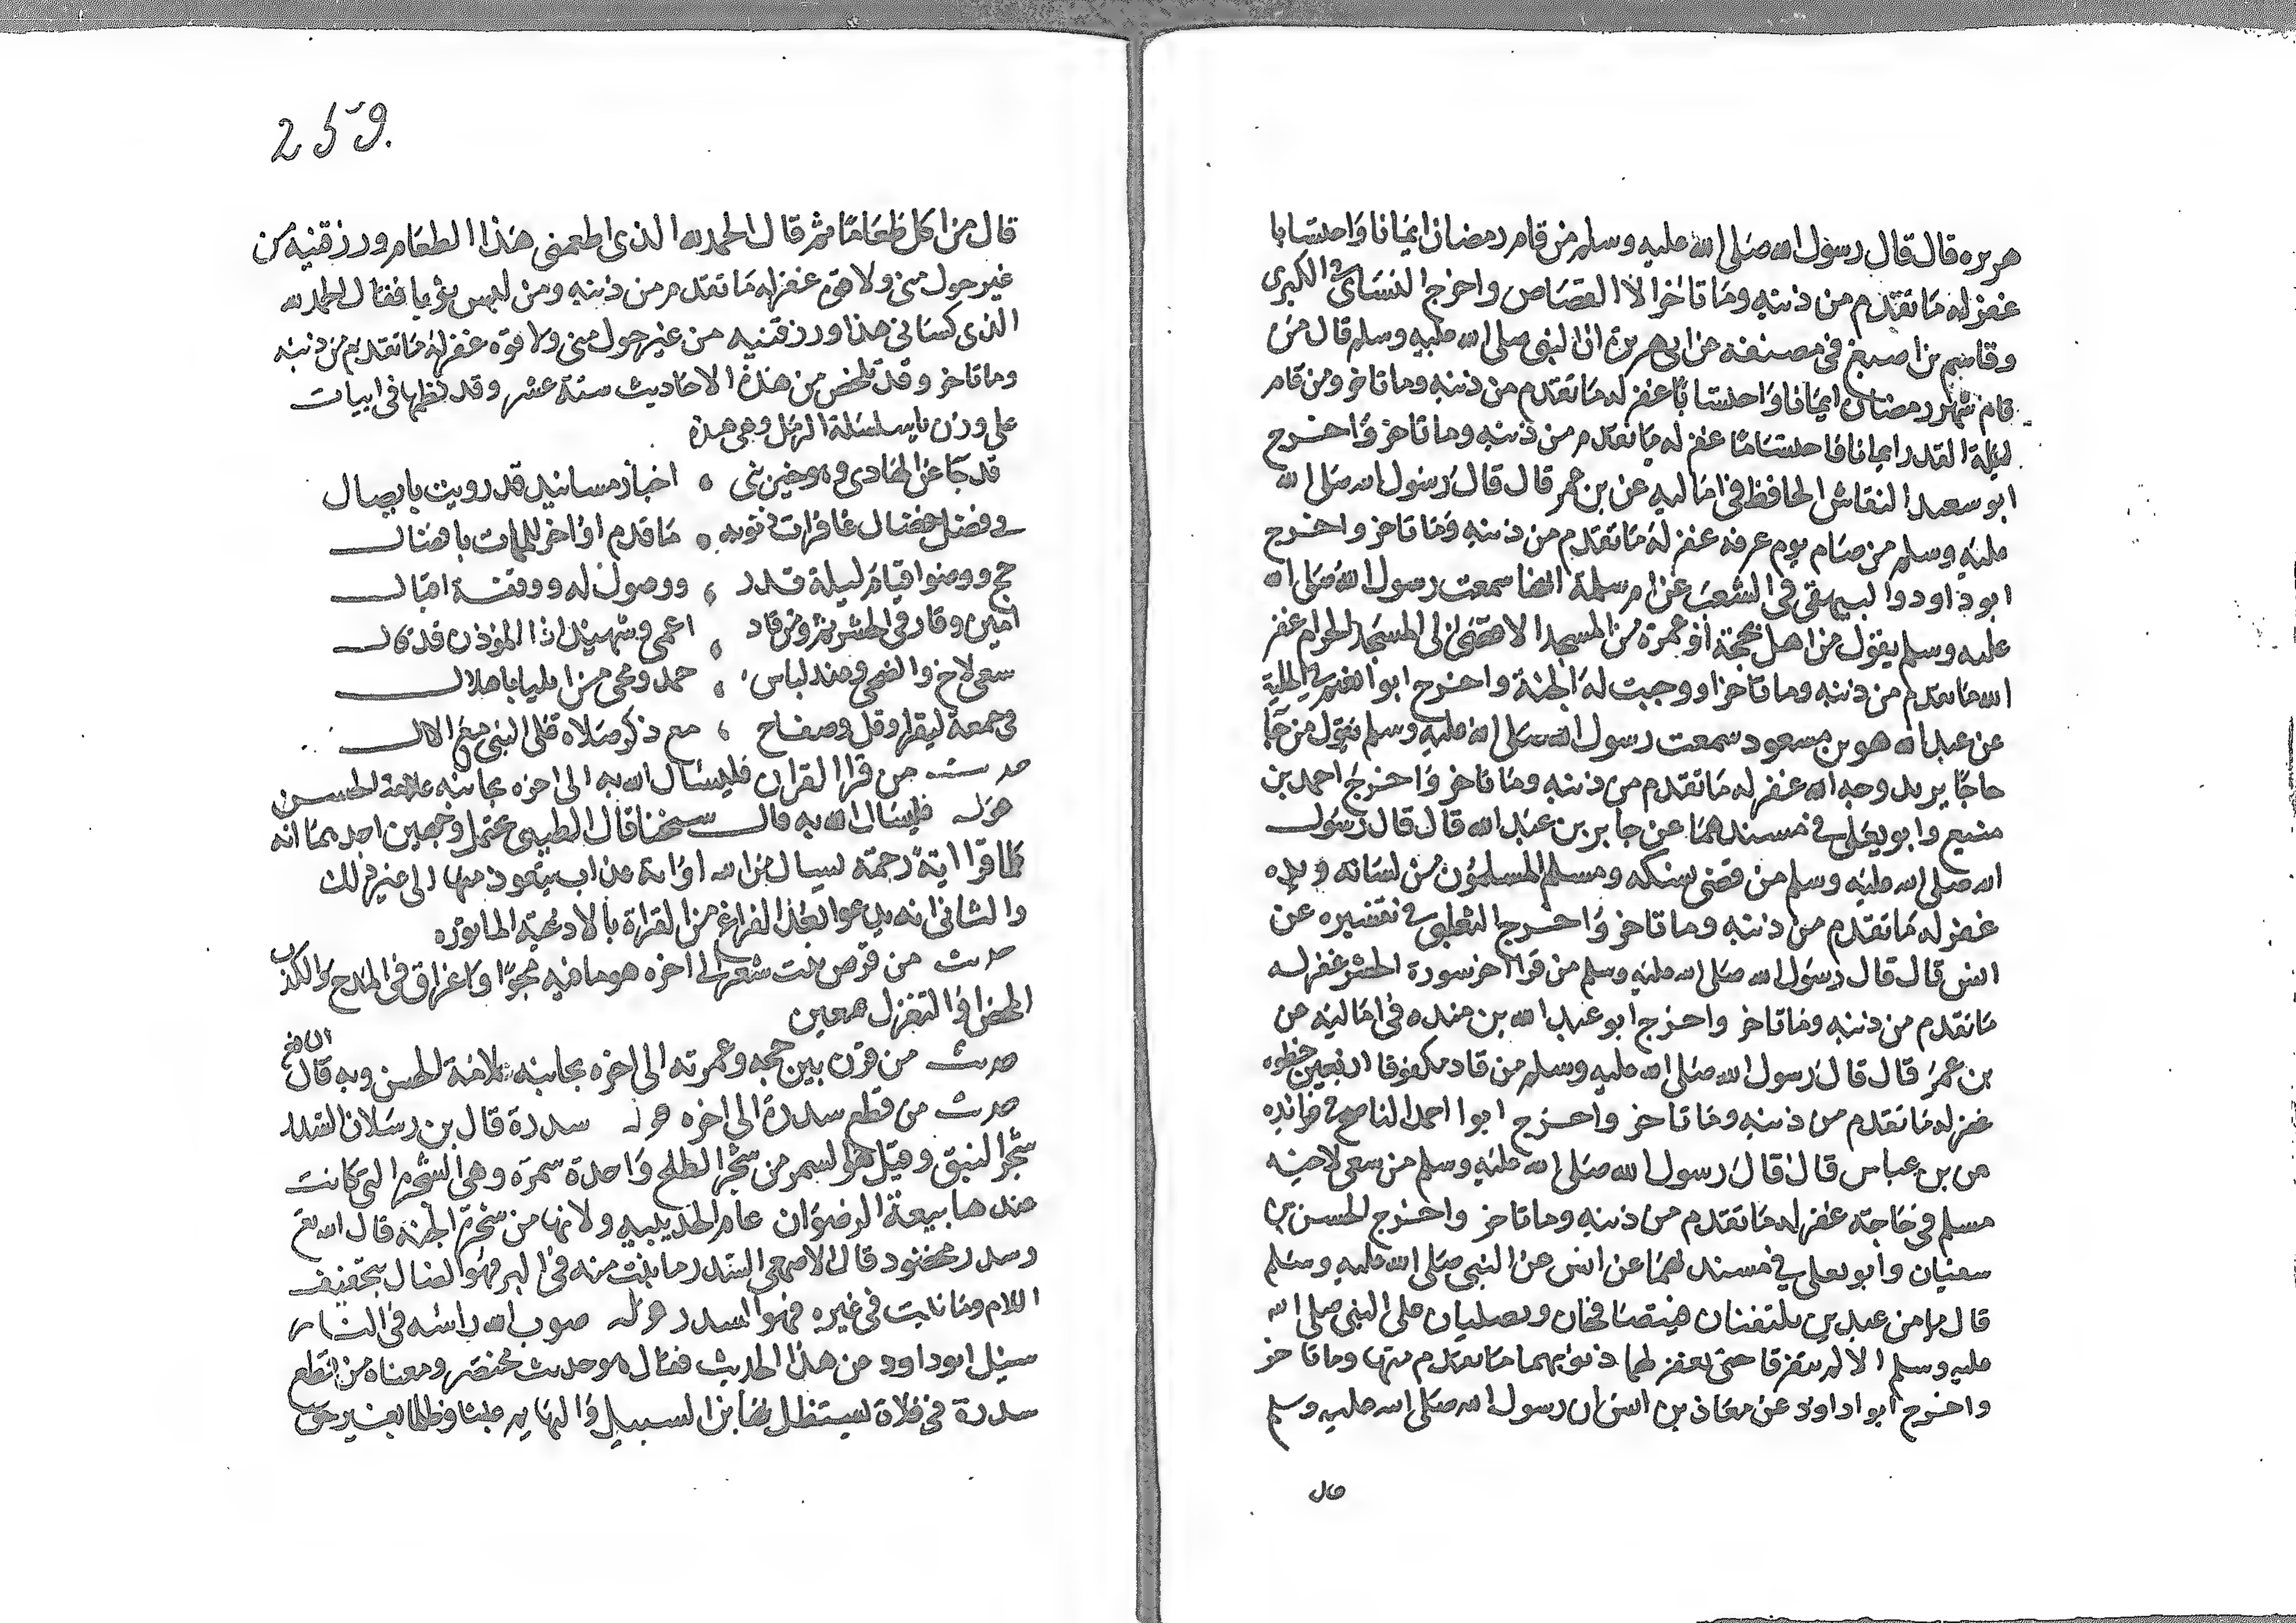 هريره قال قال رسول الله صلى الله عليه وسلم من قام رمضان ايمانا واحتسابا
غفر له ما تقدم من ذنبه وما تاخر الا القصاص واخرج النسائ في الكبرى
وقاسم بن اصبغ في مصنفه عن ابي هريرة ان النبي صلى الله عليه وسلم قال من
قام شهر رمضان ايمانا واحتسابا غفر له ما تقدم من ذنبه وما تاخر ومن قام
ليلة القدر ايمانا واحتسابا غفر له ما تقدم من ذنبه وما تاخر واخرج
ابو سعيد النقاش الحافظ في اماليه عن بن عمر قال قال رسول الله صلى الله
عليه وسلم من صام يوم عرفه غفر له ما تقدم من ذنبه وما تاخر واخرج
ابو داود والبيهقي في الشعب عن ام سلمة انها سمعت رسول الله صلى الله
عليه وسلم يقول من اهل بحجة او عمرة من المسجد الاقصى الى المسجد الحرام غفر
الله ما تقدم من ذنبه وما تاخر او وجبت له الجنة واخرج ابو نعيم في الحلية
عن عبد الله هو بن مسعود سمعت رسول الله صلى الله عليه وسلم يقول من جا
حاجا يريد وجه الله غفر له ما تقدم من ذنبه وما تاخر واخرج احمد بن
منيع وابو يعلى في مسندهما عن جابر بن عبد الله قال قال رسول
الله صلى الله عليه وسلم من قضى نسكه ومسلم المسلمون من لسانه ويده
غفر له ما تقدم من ذنبه وما تاخر واخرج الثعلبي في تفسيره عن
انس قال قال رسول الله صلى الله عليه وسلم من قرا اخر سورة الحشر غفر له
ما تقدم من ذنبه وما تاخر واخرج ابو عبد الله بن منده في اماليه عن
بن عمر قال قال رسول الله صلى الله عليه وسلم من قاد مكفوفا اربعين خطوه
غفر له ما تقدم من ذنبه وما تاخر واخرج ابو احمد الناصح في فوائده
عن بن عباس قال قال رسول الله صلى الله عليه وسلم من سعى لاخيه
مسلم في حاجته غفر له ما تقدم من ذنبه وما تاخر واخرج الحسن بن
سفيان وابو يعلى في مسنديهما عن انس عن النبي صلى الله عليه وسلم
قال ما من عبدين يلتقيان فيتصافحان ويصليان على النبي صلى الله
عليه وسلم الا لم يتفرقا حتى يغفر لهما ذنوبهما ما تقدم منها وما تاخر
واخرج ابو داود عن معاذ بن انس ان رسول الله صلى الله عليه وسلم
قال
259.
قال من اكل طعاما ثم قال الحمد لله الذي اطعمني هذا الطعام ورزقنيه من
غير حول مني ولا قوة غفر له ما تقدم من ذنبه ومن لبس ثوبا فقال الحمد لله
الذي كساني هذا ورزقنيه من غير حول مني ولا قوة غفر له ما تقدم من ذنبه
وما تاخر وقد تلخص من هذه الاحاديث ستة عشر وقد نظمها في ابيات
على وزن يا سلسلة الرمل وهي هذه
قد جا عن الهادي وهو خير نبي ، اخبار مسانيد قد رويت بايصال
في فضل خصال غافرات ذنوبه ، ما قدم او اخر للممات بافضال
حج ووضوا قيام ليلة قدر ، وصوم له ووقفة اقبال
امين وقار في الحشر ثم ومن قاد ، اعمى وشهيد اذا الموذن قد قال
سعى لاخ والضحى وعند لباس ، حمد ومجي من ايليا باهلال
في جمعة ليقرا وقل وصفاح ، مع ذكر صلاة على النبي مع الال
حديث من قرا القران فليسال الله به الى اخره بجانبه علامة الحسن
قوله فليسال الله به قال شيخنا قال الطيبي يحتمل وجهين احدهما انه
كلما قرا اية رحمة يسال من الله او اية عذاب يتعوذ منها الى غير ذلك
والثاني انه يدعوا بعد الفراغ من القراة بالادعية الماثوره
حديث من قرض بيت شعر الى اخره هو ما فيه هجوا واغراق في المدح والكذب
المحض او التغزل بمعين
حديث من قرن بين حجه وعمرته الى اخره بجانبه علامة الحسن وبه قال
حديث من قطع سدرة الى اخره قوله سدرة قال بن رسلان السدر
شجر النبق وقيل هو السمر من شجر الطلح واحدة سمرة وهي الشجرة التي كانت
عندها بيعة الرضوان عام الحديبيه ولانها من شجرة الجنة قال الله تع
وسدر مخضود قال الاصمعي السدر ما نبت منه في البر فهو الضال بتخفيف
اللام وما نبت في غيره فهو السدر قوله صوب الله راسه في النار
سئل ابو داود عن هذا الحديث فقال هو حديث مختصر ومعناه من قطع
سدرة في فلاة يستظل بها بن السبيل والبهايم عبثا وظلما بغير حق